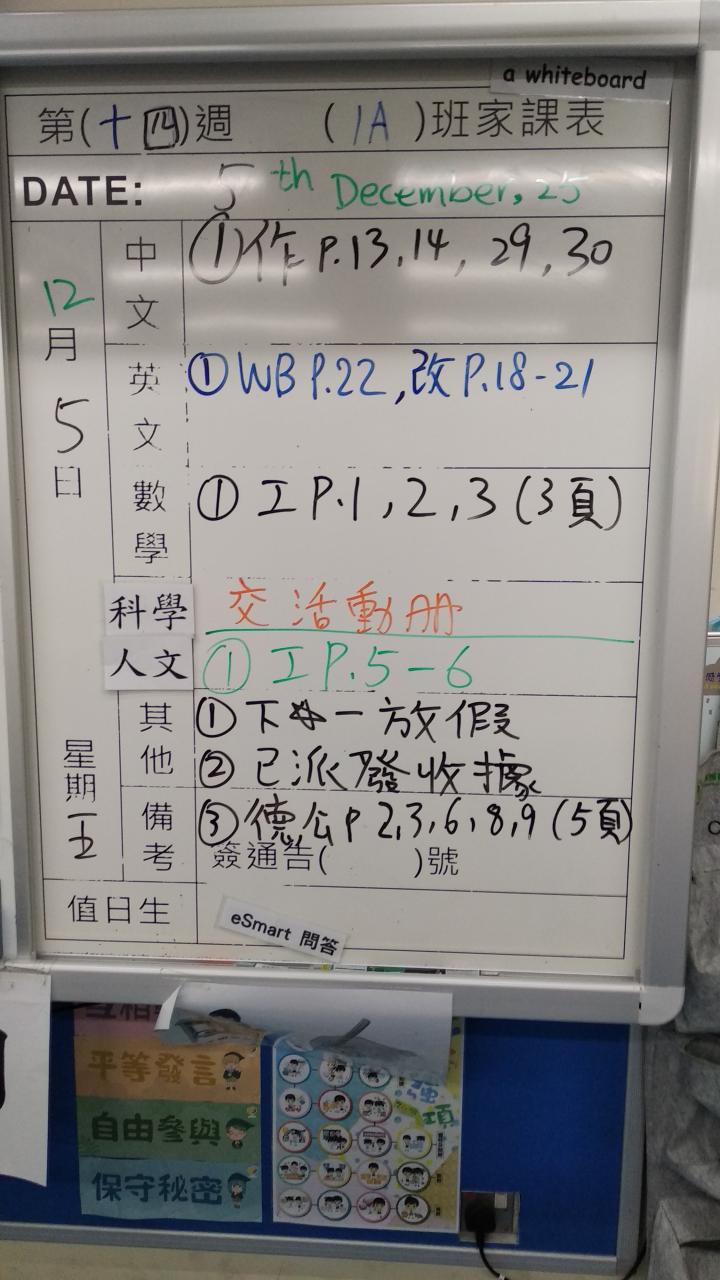 a whiteboard
第(十四)週 (1A)班家課表
DATE: 5th December, 25
12月5日
星期五
中文 ①作 P.13,14, 29,30
英文 ①WB P.22,改P.18-21
數學 ①工P.1,2,3(3頁)
科學 交活動冊
人文 ①工P.5-6
其他 ①下一放假
②已派發收據
備考 ③德公P 2,3,6,8,9(5頁)
簽通告( )號
值日生
eSmart 問答
平等發言
自由參與
保守秘密
強項